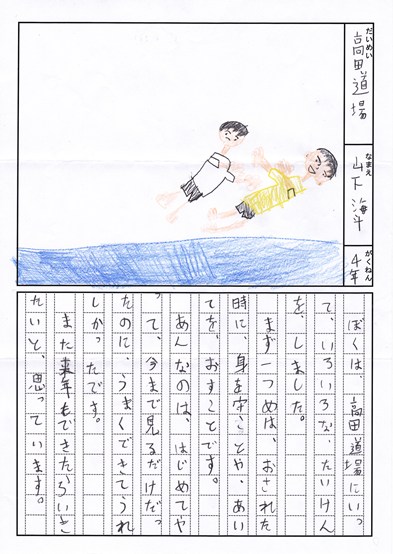 だいめい
高田道場
なまえ
山下海斗
がくねん
4年
ぼくは、高田道場にいっ
て、いろいろな、たいけん
を、しました。
まず一つめは、おされた
時に、身を守ことや、あい
てを、おすことです。
あんなのは、はじめてや
って、今まで見るだけだっ
たのに、うまくできてうれ
しかったです。
また来年もできたらいき
たいと、思っています。